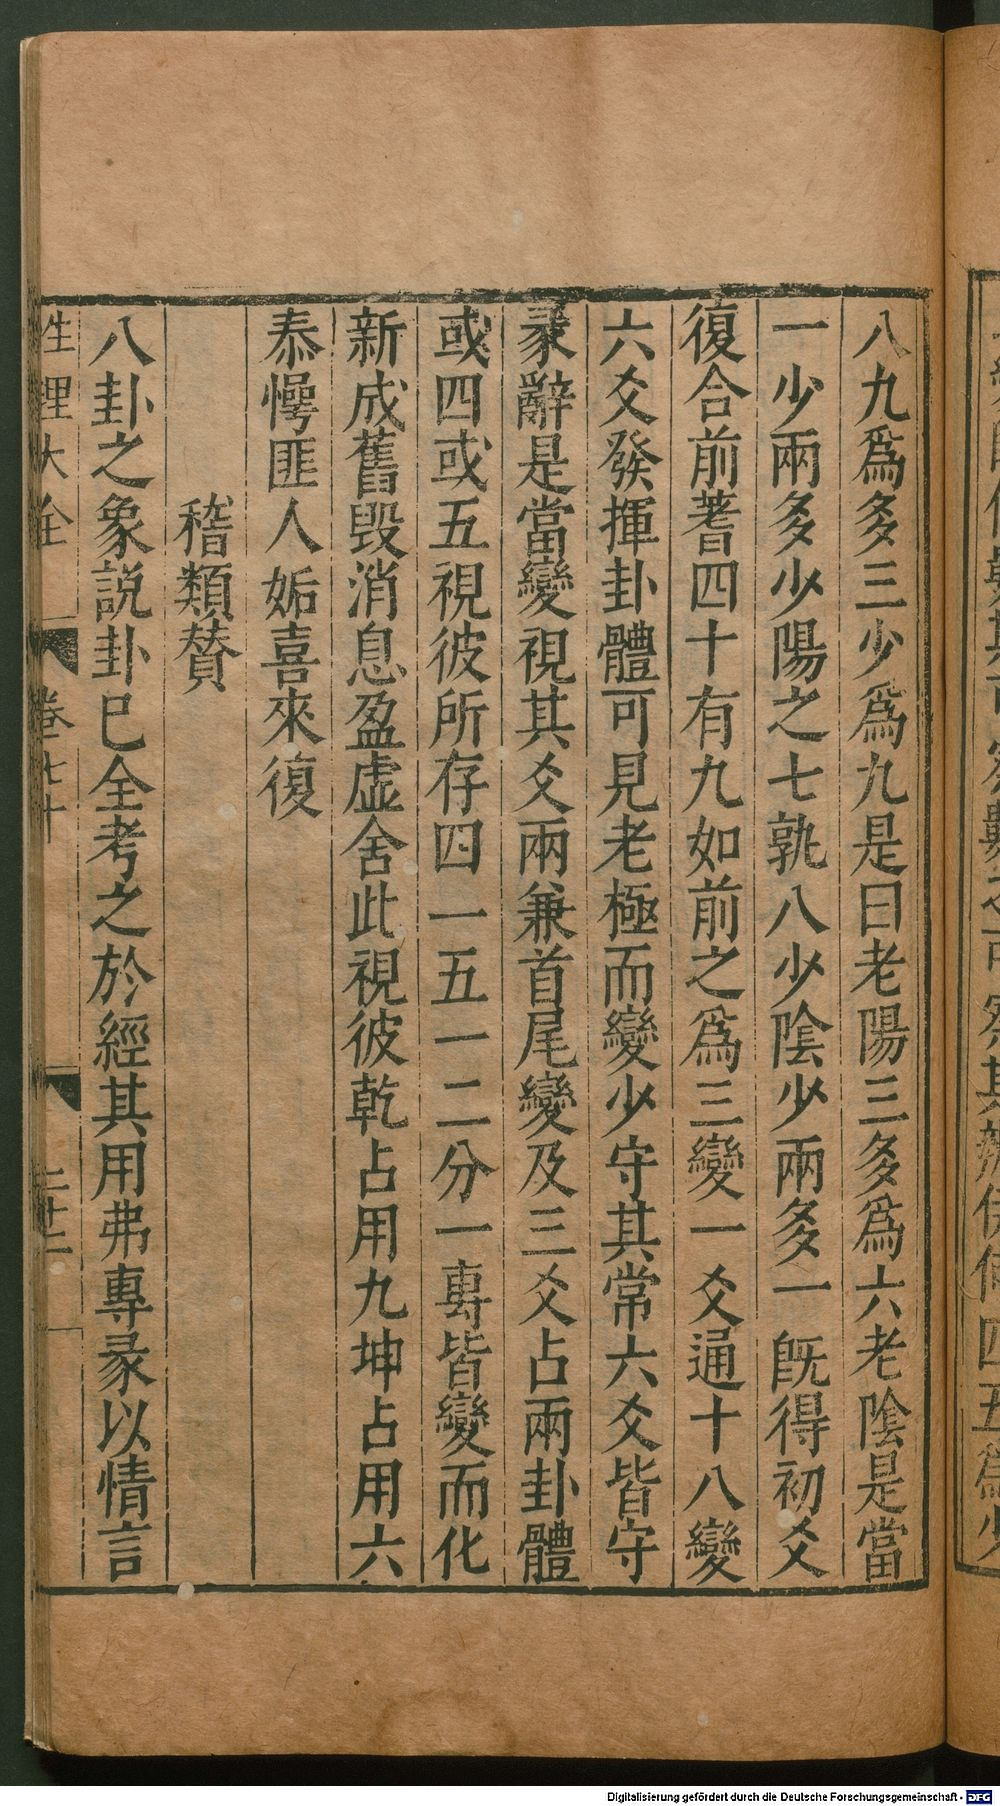 八九爲多三少爲九是曰老陽三多爲六老陰是當
一少兩多少陽之七孰八少陰少兩多一旣得初爻
復合前蓍四十有九如前之爲三變一爻通十八變
六爻發揮卦體可見老極而變少守其常六爻皆守
彖辭是當變視其爻兩兼首尾變及三爻占兩卦體
或四或五視彼所存四一五一二分一專皆變而化
新成舊毀消息盈虛舍此視彼乾占用九坤占用六
泰愕匪人姤喜來復
稽類賛
八卦之象說卦已全考之於經其用弗專彖以情言
性理大全 卷七十 二十二
Digitalisierung gefördert durch die Deutsche Forschungsgemeinschaft - DFG